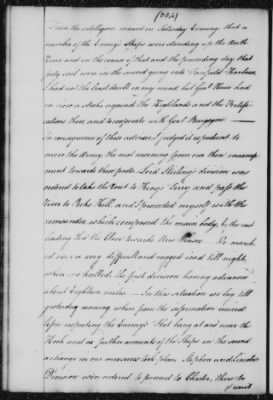 (224)
From the intelligence received on Saturday Evening that a
number of the Enemy's Ships were standing up the North
River and in the course of that and the preceding day that
sixty sail were in the sound going into Harbour,
I had not the least doubt in my mind but Genl Howe had
in view a stroke against the Highlands and the Fortifi-
cations there and to cooperate with Genl Burgoyne —
In consequence of these advices I judged it expedient to
move the Army the next morning from our then encamp-
ment towards those posts Lord Stirlings division was
ordered to take the rout to Kings Ferry and pass the
River to Peeks Kill, and I proceeded myself with the
remainder which composed the main body, by the rout
leading thro' the Clove towards New Windsor We march-
ed over a very difficult and rugged road till night
when we halted, the first division having advanced
about Eighteen miles — In this situation we lay till
yesterday morning when from the information received
respecting the Enemys Fleet being at and near the
Hook and no further accounts of the Ships in the sound
a change in our measures took place Stephen and Lincolns
Division were ordered to proceed to Chester, there to
await